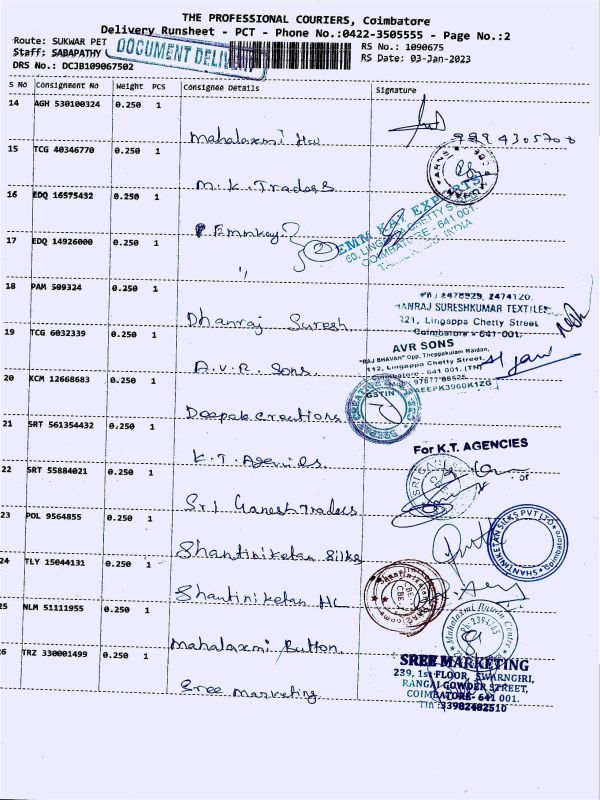 THE PROFESSIONAL COURIERS, Coimbatore
Delivery Runsheet - PCT - Phone No.:0422-3505555 - Page No.:2
Route: SUKWAR PET
DOCUMENT DELI
RS No.: 1090675
Staff: SABAPATHY
RS Date: 03-Jan-2023
DRS No.: DCJB109067502
S No Consignment No Weight PCS Consignee Details Signature
14 AGH 530100324 0.250 1
Mahalaxmi Hw
9994305708
15 TCG 40346770 0.250 1
M.K. Traders
16 EDQ 16575432 0.250 1
EMM KAY EXPORTS
60, LINGAPPA CHETTY ST
COIMBATORE - 641 001.
INDIA
Emmkay
17 EDQ 14926000 0.250 1
"
2
18 PAM 509324 0.250 1
PH : 2478929, 2474120.
HANRAJ SURESHKUMAR TEXTILES
221, Lingappa Chetty Street
Coimbatore - 641 001.
Dhanraj Suresh
19 TCG 6032339 0.250 1
AVR SONS
"RAJ BHAVAN" Opp. Theppakulam Maidan,
112, Lingappa Chetty Street,
Coimbatore - 641 001. (TN)
GSTIN
A.V.R. Sons.
20 KCM 12668683 0.250 1
Deepak creations
21 SRT 561354432 0.250 1
For K.T. AGENCIES
K.T. Agencies
22 SRT 55884021 0.250 1
SRI GAN
Sri Ganesh Traders
23 POL 9564855 0.250 1
SHANTINIKETAN SILKS PVT LTD
Coimbatore
Shantiniketan Silks
24 TLY 15044131 0.250 1
Shantiniketan HL
25 NLM 51111955 0.250 1
Mahalaxmi Button Centre
Mahalaxmi Button.
26 TRZ 330001499 0.250 1
SREE MARKETING
239, 1st FLOOR, SWARNGIRI,
RANGAI GOWDER STREET,
COIMBATORE- 641 001.
Tin :33982482510
Sree marketing